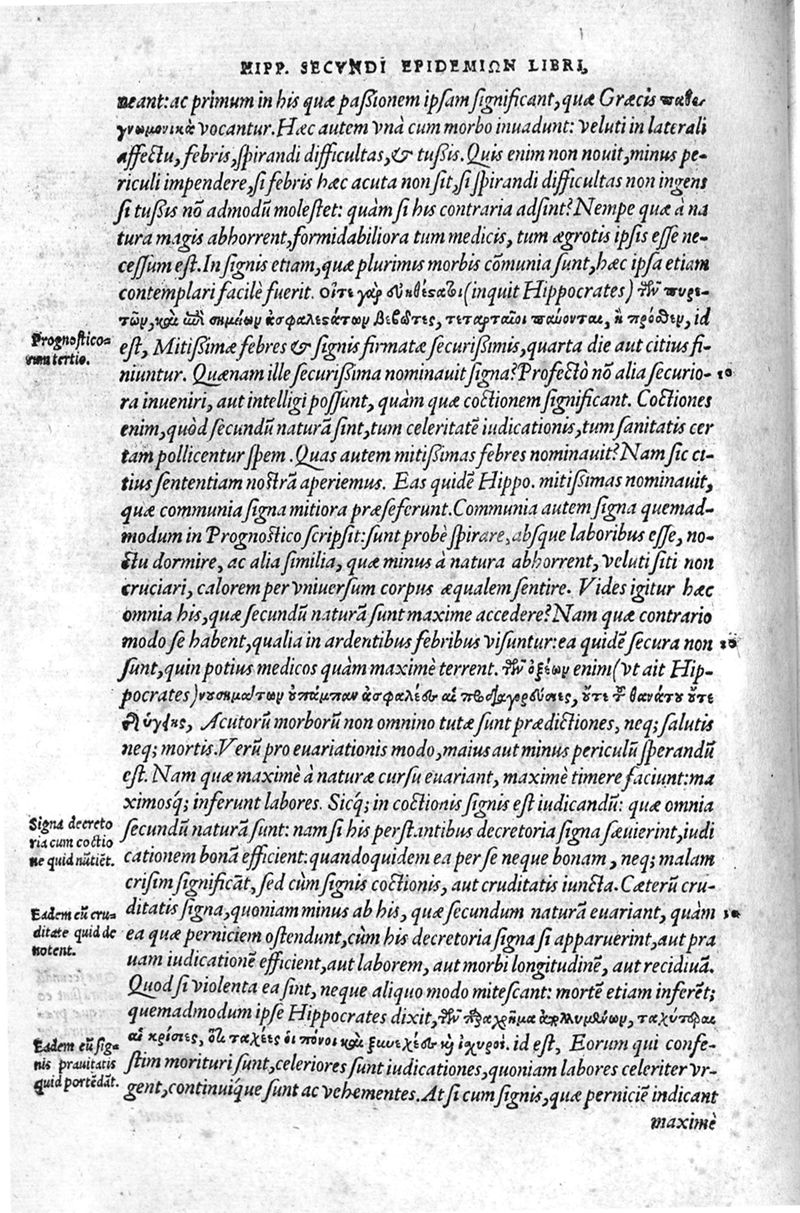 HIPP. SECVNDI EPIDEMIΩN LIBRI,
neant: ac primum in his quæ paßionem ipsam significant, quæ Græcis παθο-
γνωμονικὰ vocantur. Hæc autem vnà cum morbo inuadunt: veluti in laterali
affectu, febris, spirandi difficultas, & tußis. Quis enim non nouit, minus pe-
riculi impendere, si febris hæc acuta non sit, si spirandi difficultas non ingens
si tußis nō admodū molestet: quàm si his contraria adsint? Nempe quæ à na
tura magis abhorrent, formidabiliora tum medicis, tum ægrotis ipsis esse ne-
cessum est. In signis etiam, quæ plurimis morbis cōmunia sunt, hæc ipsa etiam
contemplari facilè fuerit. οἵτε γὰρ εὐηθέσατοι (inquit Hippocrates) τῶν πυρε-
τῶν, καὶ ἐπὶ σημείων ἀσφαλεσάτων βεβῶτες, τεταρταῖοι παύονται, ἢ πρόσθεν, id
Prognostico-
rum tertio.
est, Mitißimæ febres & signis firmatæ securißimis, quarta die aut citius fi-
niuntur. Quænam ille securißima nominauit signa? Profectò nō alia securio- 10
ra inueniri, aut intelligi possunt, quàm quæ coctionem significant. Coctiones
enim, quòd secundū naturā sint, tum celeritatē iudicationis, tum sanitatis cer
tam pollicentur spem. Quas autem mitißimas febres nominauit? Nam sic ci-
tius sententiam nostrā aperiemus. Eas quidē Hippo. mitißimas nominauit,
quæ communia signa mitiora præseferunt. Communia autem signa quemad-
modum in Prognostico scripsit: sunt probè spirare, absque laboribus esse, no-
ctu dormire, ac alia similia, quæ minus à natura abhorrent, veluti siti non
cruciari, calorem per vniuersum corpus æqualem sentire. Vides igitur hæc
omnia his, quæ secundū naturā sunt maxime accedere? Nam quæ contrario
modo se habent, qualia in ardentibus febribus visuntur: ea quidē secura non 20
sunt, quin potius medicos quàm maximè terrent. τῶν ὀξέων enim (vt ait Hip-
pocrates) νοσημάτων οὐπάμπαν ἀσφαλέες αἱ προσαγορεύσιες, οὔτε τοῦ θανάτου οὔτε
τῆς ὑγιείης, Acutorū morborū non omnino tutæ sunt prædictiones, neq; salutis
neq; mortis. Verū pro euariationis modo, maius aut minus periculū sperandū
est. Nam quæ maximè à naturæ cursu euariant, maximè timere faciunt: ma
ximosq́; inferunt labores. Sicq́; in coctionis signis est iudicandū: quæ omnia
Signa decreto
ria cum coctio
ne quid nūtiēt.
secundū naturā sunt: nam si his perstantibus decretoria signa sæuierint, iudi
cationem bonā efficient: quandoquidem ea per se neque bonam, neq; malam
crisim significāt, sed cùm signis coctionis, aut cruditatis iuncta. Cæterū cru-
Eadem cū cru-
ditate quid de
notent.
ditatis signa, quoniam minus ab his, quæ secundum naturā euariant, quàm 30
ea quæ perniciem ostendunt, cùm his decretoria signa si apparuerint, aut pra
uam iudicationē efficient, aut laborem, aut morbi longitudinē, aut recidiuā.
Quod si violenta ea sint, neque aliquo modo mitescant: mortē etiam inferēt;
quemadmodum ipse Hippocrates dixit, τῶν παραχρῆμα ἀπολλυμένων, ταχύτεραι
αἱ κρίσιες, ὅτι ταχέες οἱ πόνοι καὶ ξυνεχέες καὶ ἰχυροί. id est, Eorum qui confe-
Eadem cū sig-
nis prauitatis
quid portēdāt.
stim morituri sunt, celeriores sunt iudicationes, quoniam labores celeriter vr-
gent, continuiq́ue sunt ac vehementes. At si cum signis, quæ perniciē indicant
maximè